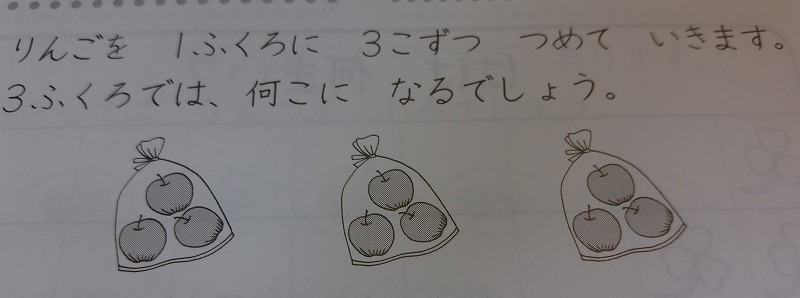 りんごを 1ふくろに 3こずつ つめて いきます。
3ふくろでは、何こに なるでしょう。